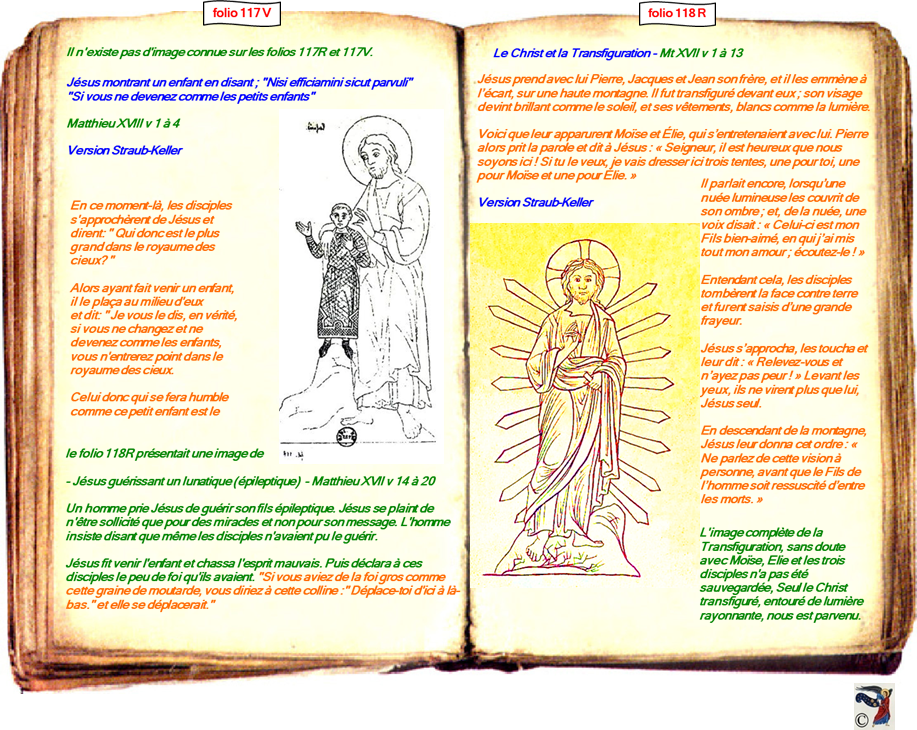 folio 117 V
Il n'existe pas d'image connue sur les folios 117R et 117V.
Jésus montrant un enfant en disant ; "Nisi efficiamini sicut parvuli"
"Si vous ne devenez comme les petits enfants"
Matthieu XVIII v 1 à 4
Version Straub-Keller
En ce moment-là, les disciples
s'approchèrent de Jésus et
dirent: " Qui donc est le plus
grand dans le royaume des
cieux? "
Alors ayant fait venir un enfant,
il le plaça au milieu d'eux
et dit: " Je vous le dis, en vérité,
si vous ne changez et ne
devenez comme les enfants,
vous n'entrerez point dans le
royaume des cieux.
Celui donc qui se fera humble
comme ce petit enfant est le
le folio 118R présentait une image de
- Jésus guérissant un lunatique (épileptique) - Matthieu XVII v 14 à 20
Un homme prie Jésus de guérir son fils épileptique. Jésus se plaint de
n'être sollicité que pour des miracles et non pour son message. L'homme
insiste disant que même les disciples n'avaient pu le guérir.
Jésus fit venir l'enfant et chassa l'esprit mauvais. Puis déclara à ces
disciples le peu de foi qu'ils avaient. "Si vous aviez de la foi gros comme
cette graine de moutarde, vous diriez à cette colline :" Déplace-toi d'ici à là-
bas." et elle se déplacerait."
folio 118 R
Le Christ et la Transfiguration - Mt XVII v 1 à 13
Jésus prend avec lui Pierre, Jacques et Jean son frère, et il les emmène à
l'écart, sur une haute montagne. Il fut transfiguré devant eux ; son visage
devint brillant comme le soleil, et ses vêtements, blancs comme la lumière.
Voici que leur apparurent Moïse et Élie, qui s'entretenaient avec lui. Pierre
alors prit la parole et dit à Jésus : « Seigneur, il est heureux que nous
soyons ici ! Si tu le veux, je vais dresser ici trois tentes, une pour toi, une
pour Moïse et une pour Élie. »
Version Straub-Keller
Il parlait encore, lorsqu'une
nuée lumineuse les couvrit de
son ombre ; et, de la nuée, une
voix disait : « Celui-ci est mon
Fils bien-aimé, en qui j'ai mis
tout mon amour ; écoutez-le ! »
Entendant cela, les disciples
tombèrent la face contre terre
et furent saisis d'une grande
frayeur.
Jésus s'approcha, les toucha et
leur dit : « Relevez-vous et
n'ayez pas peur ! » Levant les
yeux, ils ne virent plus que lui,
Jésus seul.
En descendant de la montagne,
Jésus leur donna cet ordre : «
Ne parlez de cette vision à
personne, avant que le Fils de
l'homme soit ressuscité d'entre
les morts. »
L'image complète de la
Transfiguration, sans doute
avec Moïse, Elie et les trois
disciples n'a pas été
sauvegardée, Seul le Christ
transfiguré, entouré de lumière
rayonnante, nous est parvenu.
©